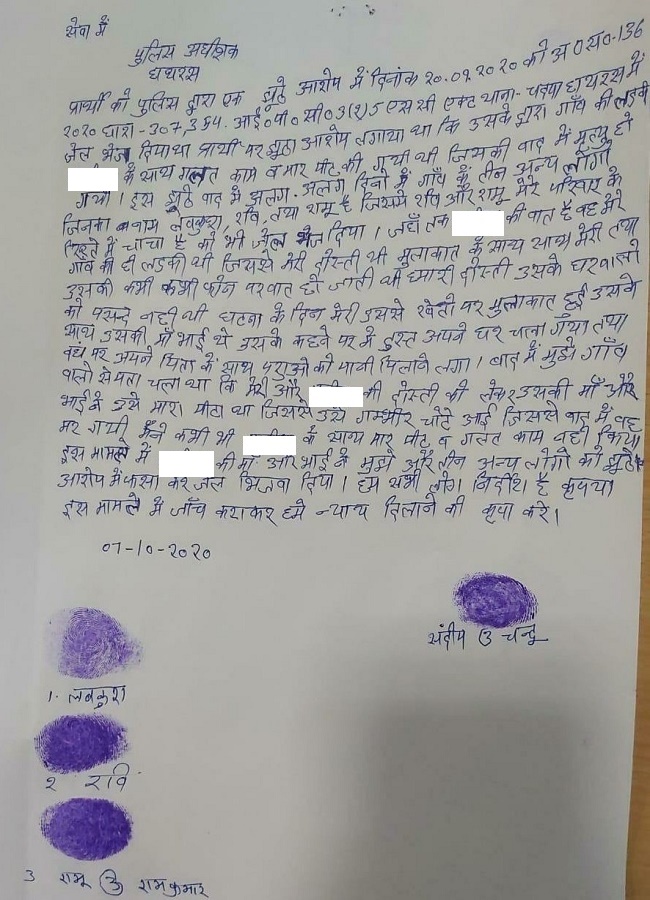 सेवा में
पुलिस अधीक्षक
हाथरस
प्रार्थी को पुलिस द्वारा एक झूठे आरोप में दिनांक 20.09.2020 को अ0 स0-136
2020 धारा-307, 354. आई0पी0सी0 3(2)5 एस सी एक्ट थाना-चन्दपा हाथरस में
जेल भेज दिया था प्रार्थी पर झूठा आरोप लगाया था कि उसके द्वारा गाँव की लडकी
के साथ गलत काम व मार पीट की गयी थी जिसकी बाद में मृत्यु हो
गयी। इस झूठे वाद में अलग-अलग दिनो में गाँव के तीन अन्य लोगो
जिनका नाम लवकुश, रवि, तथा रामू है जिसमे रवि और रामू मेरे परिवार के
रिस्ते में चाचा है को भी जेल भेज दिया। जहाँ तक की बात है वह मेरे
गाँव की ही लडकी थी जिससे मेरी दोस्ती थी मुलाकात के साथ साथ मेरी तथा
उसकी कभी कभी फोन पर बात हो जाती थी हमारी दोस्ती उसके घरवालो
को पसन्द नही थी घटना के दिन मेरी उससे खेतो पर मुलाकात हुई उसके
साथ उसकी माँ भाई थे उसके कहने पर में तुरन्त अपने घर चला गया तथा
वहा पर अपने पिता के साथ पशुओ को पानी पिलाने लगा। बाद में मुझे गाँव
वालो से पता चला था कि मेरी और की दोस्ती को लेकर उसकी माँ और
भाई ने उसे मारा पीटा था जिससे उसे गम्भीर चोटे आई जिससे बाद में वह
मर गयी मैने कभी भी के साथ मार पीट व गलत काम नही किया
इस मामले में की माँ और भाई ने मुझे और तीन अन्य लोगो को झूठे
आरोप में फसा कर जेल भिजवा दिया। हम सभी लोग निर्दोश है कृपया
इस मामले में जाँच कराकर हमे न्याय दिलाने की कृपा करे।
07-10-2020
संदीप उ चन्दू
1. लवकुश
2 रवि
3 रामू उ रामकुमार